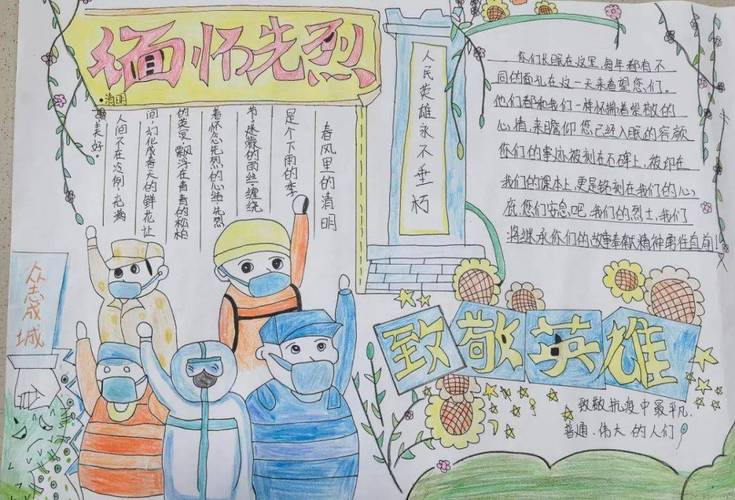 缅怀先烈
清明
春风里的清明
是个下雨的季
节,迷濛的雨丝,缠绕
着怀念先烈的心绪,先烈
的英灵,飘浮在青青的松柏
间,幻化成春天的鲜花,让
人间不在冷例,充满
美好。
人民英雄永不垂朽
你们长眠在这里,每年都有不
同的面孔在这一天来看望您们。
他们都和我们一样怀揣着崇敬的
心情,来瞻仰您已经入眠的容颜
你们的事迹被刻在石碑上,被印在
我们的课本上,更是铭刻在我们的心
底,您们安息吧,我们的烈士,我们
将继承你们的故事奉献精神勇往直前!
众志成城
致敬英雄
致敬抗疫中最平凡.
普通.伟大的人们!